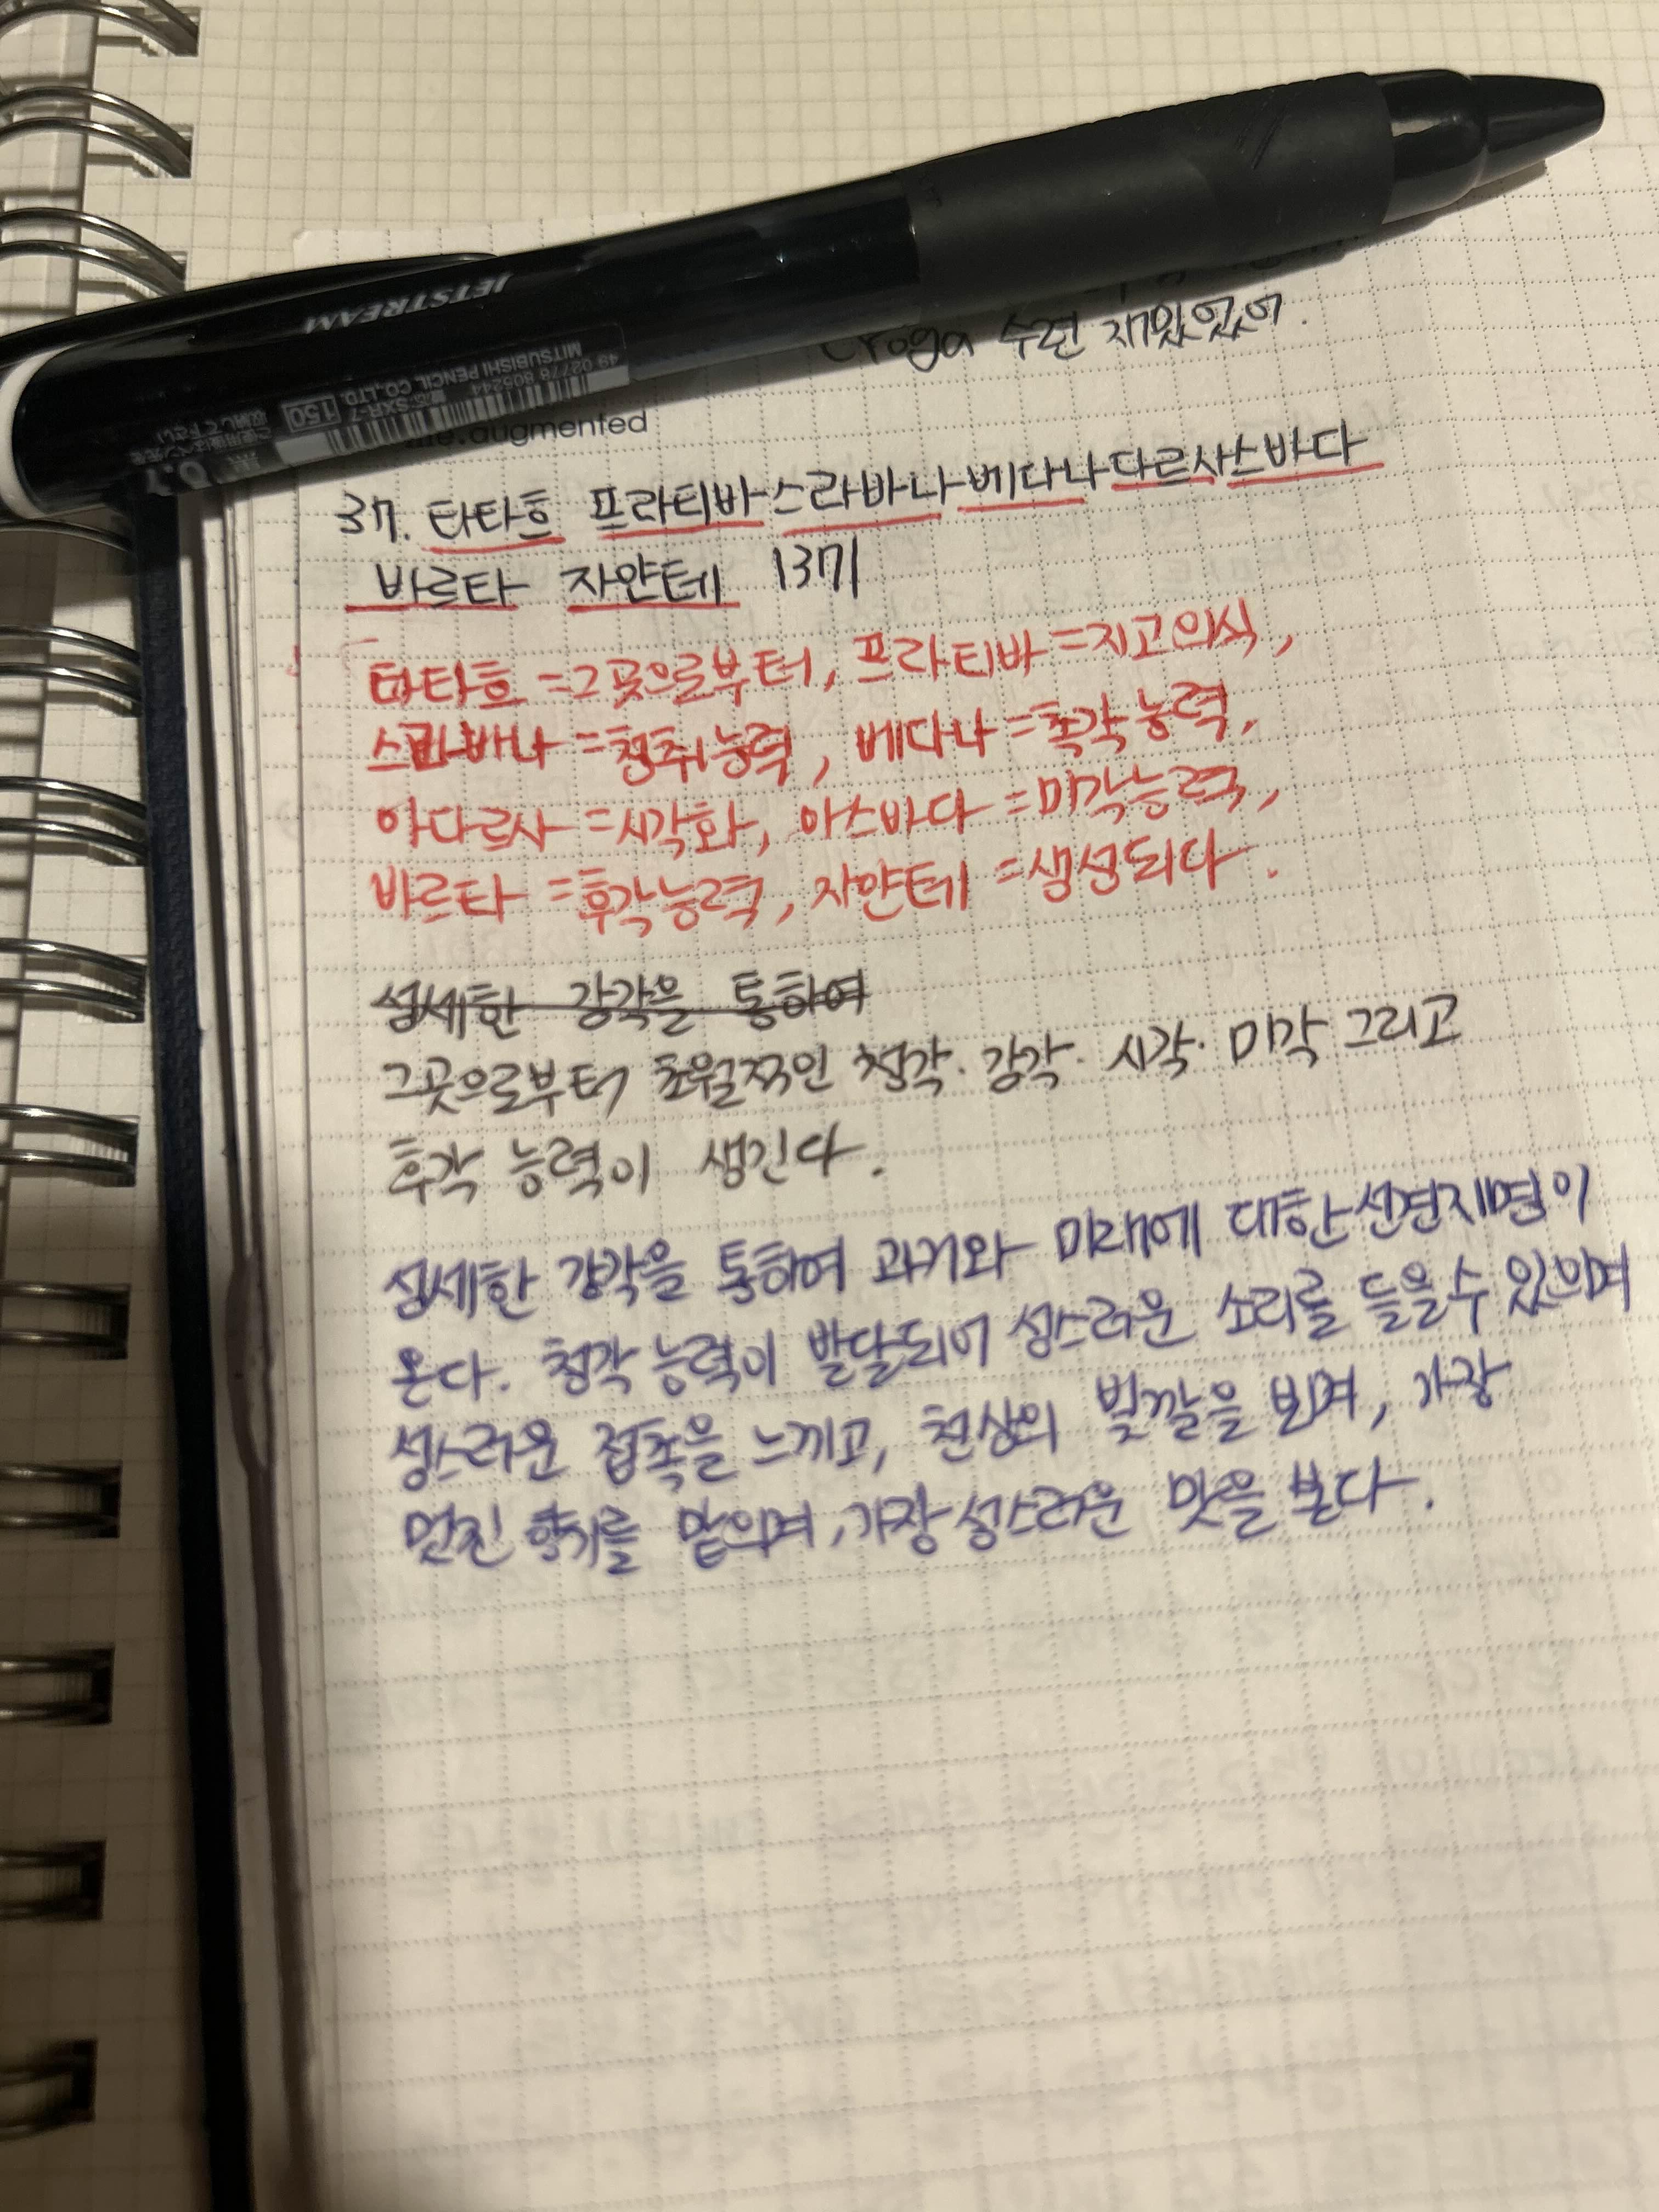 JETSTREAM
MITSUBISHI PENCIL CO.,LTD.
SXR-7 150
49 02778 805244
0.7
life.augmented
Yoga 수련 재밌었어.
37. 타타흐 프라티바-스라바나-베다나-다르사-스바다
바르타 자얀테 |37|
타타흐=그곳으로부터, 프라티바=지고의식,
스라바나=청취능력, 베다나=촉각능력,
아다르사=시각화, 아스바다=미각능력,
바르타=후각능력, 자얀테=생성되다.
섬세한 감각을 통하여
그곳으로부터 초월적인 청각·감각·시각·미각 그리고
후각 능력이 생긴다.
섬세한 감각을 통하여 과거와 미래에 대한 선견지명이
온다. 청각 능력이 발달되어 성스러운 소리를 들을 수 있으며
성스러운 접촉을 느끼고, 천상의 빛깔을 보며, 가장
멋진 향기를 맡으며, 가장 성스러운 맛을 본다.